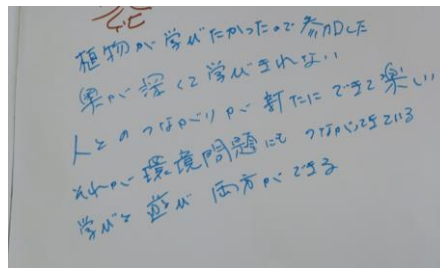 植物が学びたかったので参加した
奥が深くて学びきれない
人とのつながりが新たにできて楽しい
それが環境問題にもつながってきている
学びと遊び両方ができる